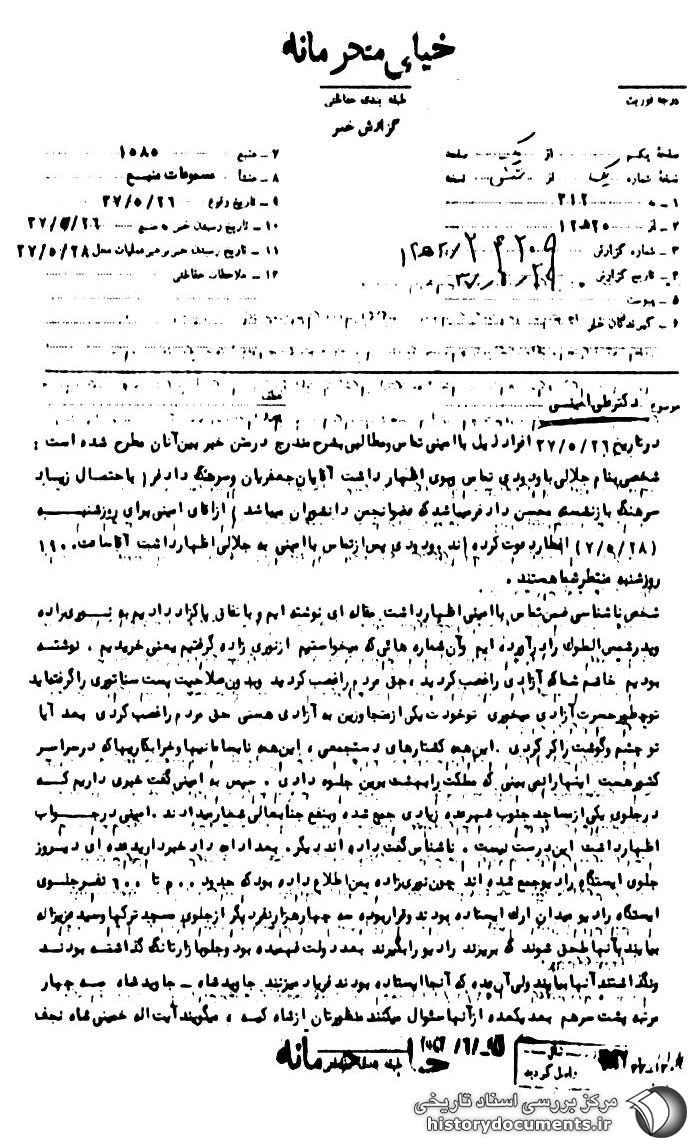 خیلی محرمانه
طبقه بندی حفاظتی
درجه فوریت
گزارش خبر
صفحهٔ یکم از یک صفحه
نسخهٔ شماره یک از شش نسخه
۱ ـ به ۳۱۲
۲ ـ از ۲۵ ه ۱۲
۳ ـ شماره گزارش
۴ ـ تاریخ گزارش
۵ ـ پیوست
۶ ـ گیرندگان خبر
۷ ـ منبع ۱۵۸۵
۸ ـ منشأ مسموعات منبع
۹ ـ تاریخ وقوع ۳۷/۵/۲۶
۱۰ ـ تاریخ رسیدن خبر به منبع
۱۱ ـ تاریخ رسیدن خبر برهبر عملیات محل ۳۷/۵/۲۸
۱۲ ـ ملاحظات حفاظتی
موضوع دکتر علی امینی
عطف
در تاریخ ۳۷/۵/۲۶ افراد ذیل با امینی تماس و مطالبی بشرح مندرج در متن خبر بین آنان مطرح شده است :
شخصی بنام جلالی با ودودی تماس و بوی اظهار داشت آقایان جعفریان و سرهنگ دادفر ( باحتمال زیاد
سرهنگ بازنشسته محسن دادفر میباشد که عضو انجمن دانشوران میباشد ) از آقای امینی برای روز شنبه
( ۳۷/۵/۲۸ ) افطار دعوت کرده اند ودودی پس از تماس با امینی به جلالی اظهار داشت آقا ساعت ۱۹۰۰
روز شنبه منتظر شما هستند .
شخص ناشناسی ضمن تماس با امینی اظهار داشت مقاله ای نوشته ایم و با نفاق پاکزاد دادیم به نوری زاده
و پدر شمس الملوک را درآورده ایم و آن شماره هائی که میخواستیم از نوری زاده گرفتیم یعنی خریدیم . نوشته
بودیم خانم شما که آزادی را غصب کردید ، حق مردم را غصب کردید و بدون صلاحیت پست سناتوری را گرفته اید
تو چطور حسرت آزادی میخوری تو خودت یکی از متجاوزین به آزادی هستی حق مردم را غصب کردی بعد آیا
تو چشم و گوشت را کر کردی . این همه کشتارهای دستجمعی ، این همه نابسامانیها و خرابکاریها که در سراسر
کشور هست اینها را نمی بینی که مملکت را بهشت برین جلوه دادی . سپس به امینی گفت خبری داریم که
در جلوی یکی از مساجد جنوب شهر عده زیادی جمع شده و بنفع جنابعالی شعار میدادند . امینی در جواب
اظهار داشت این درست نیست . ناشناس گفت داده اند دیگر . بعد ادامه داد خبر دارید عده ای دیروز
جلوی ایستگاه رادیو جمع شده اند چون نوری زاده بمن اطلاع داده بود که حدود ۵۰۰ تا ۶۰۰ نفر جلوی
ایستگاه رادیو میدان ارک ایستاده بودند و قرار بوده سه چهار هزار نفر دیگر از جلوی مسجد ترکها و سید عزیزاله
بیایند بآنها ملحق شوند که بریزند رادیو را بگیرند بعد دولت فهمیده بود و جلو بازار تانک گذاشته بودند
و نگذاشتند آنها بیایند ولی آن عده که آنجا ایستاده بودند فریاد میزنند جاوید شاه ـ جاوید شاه سه چهار
مرتبه پشت سر هم بعد یکعده از آنها سئوال میکنند منظورتان از شاه کیه ، میگویند آیت اله خمینی شاه نجف
خیلی محرمانه
مرکز بررسی اسناد تاریخی
historydocuments.ir